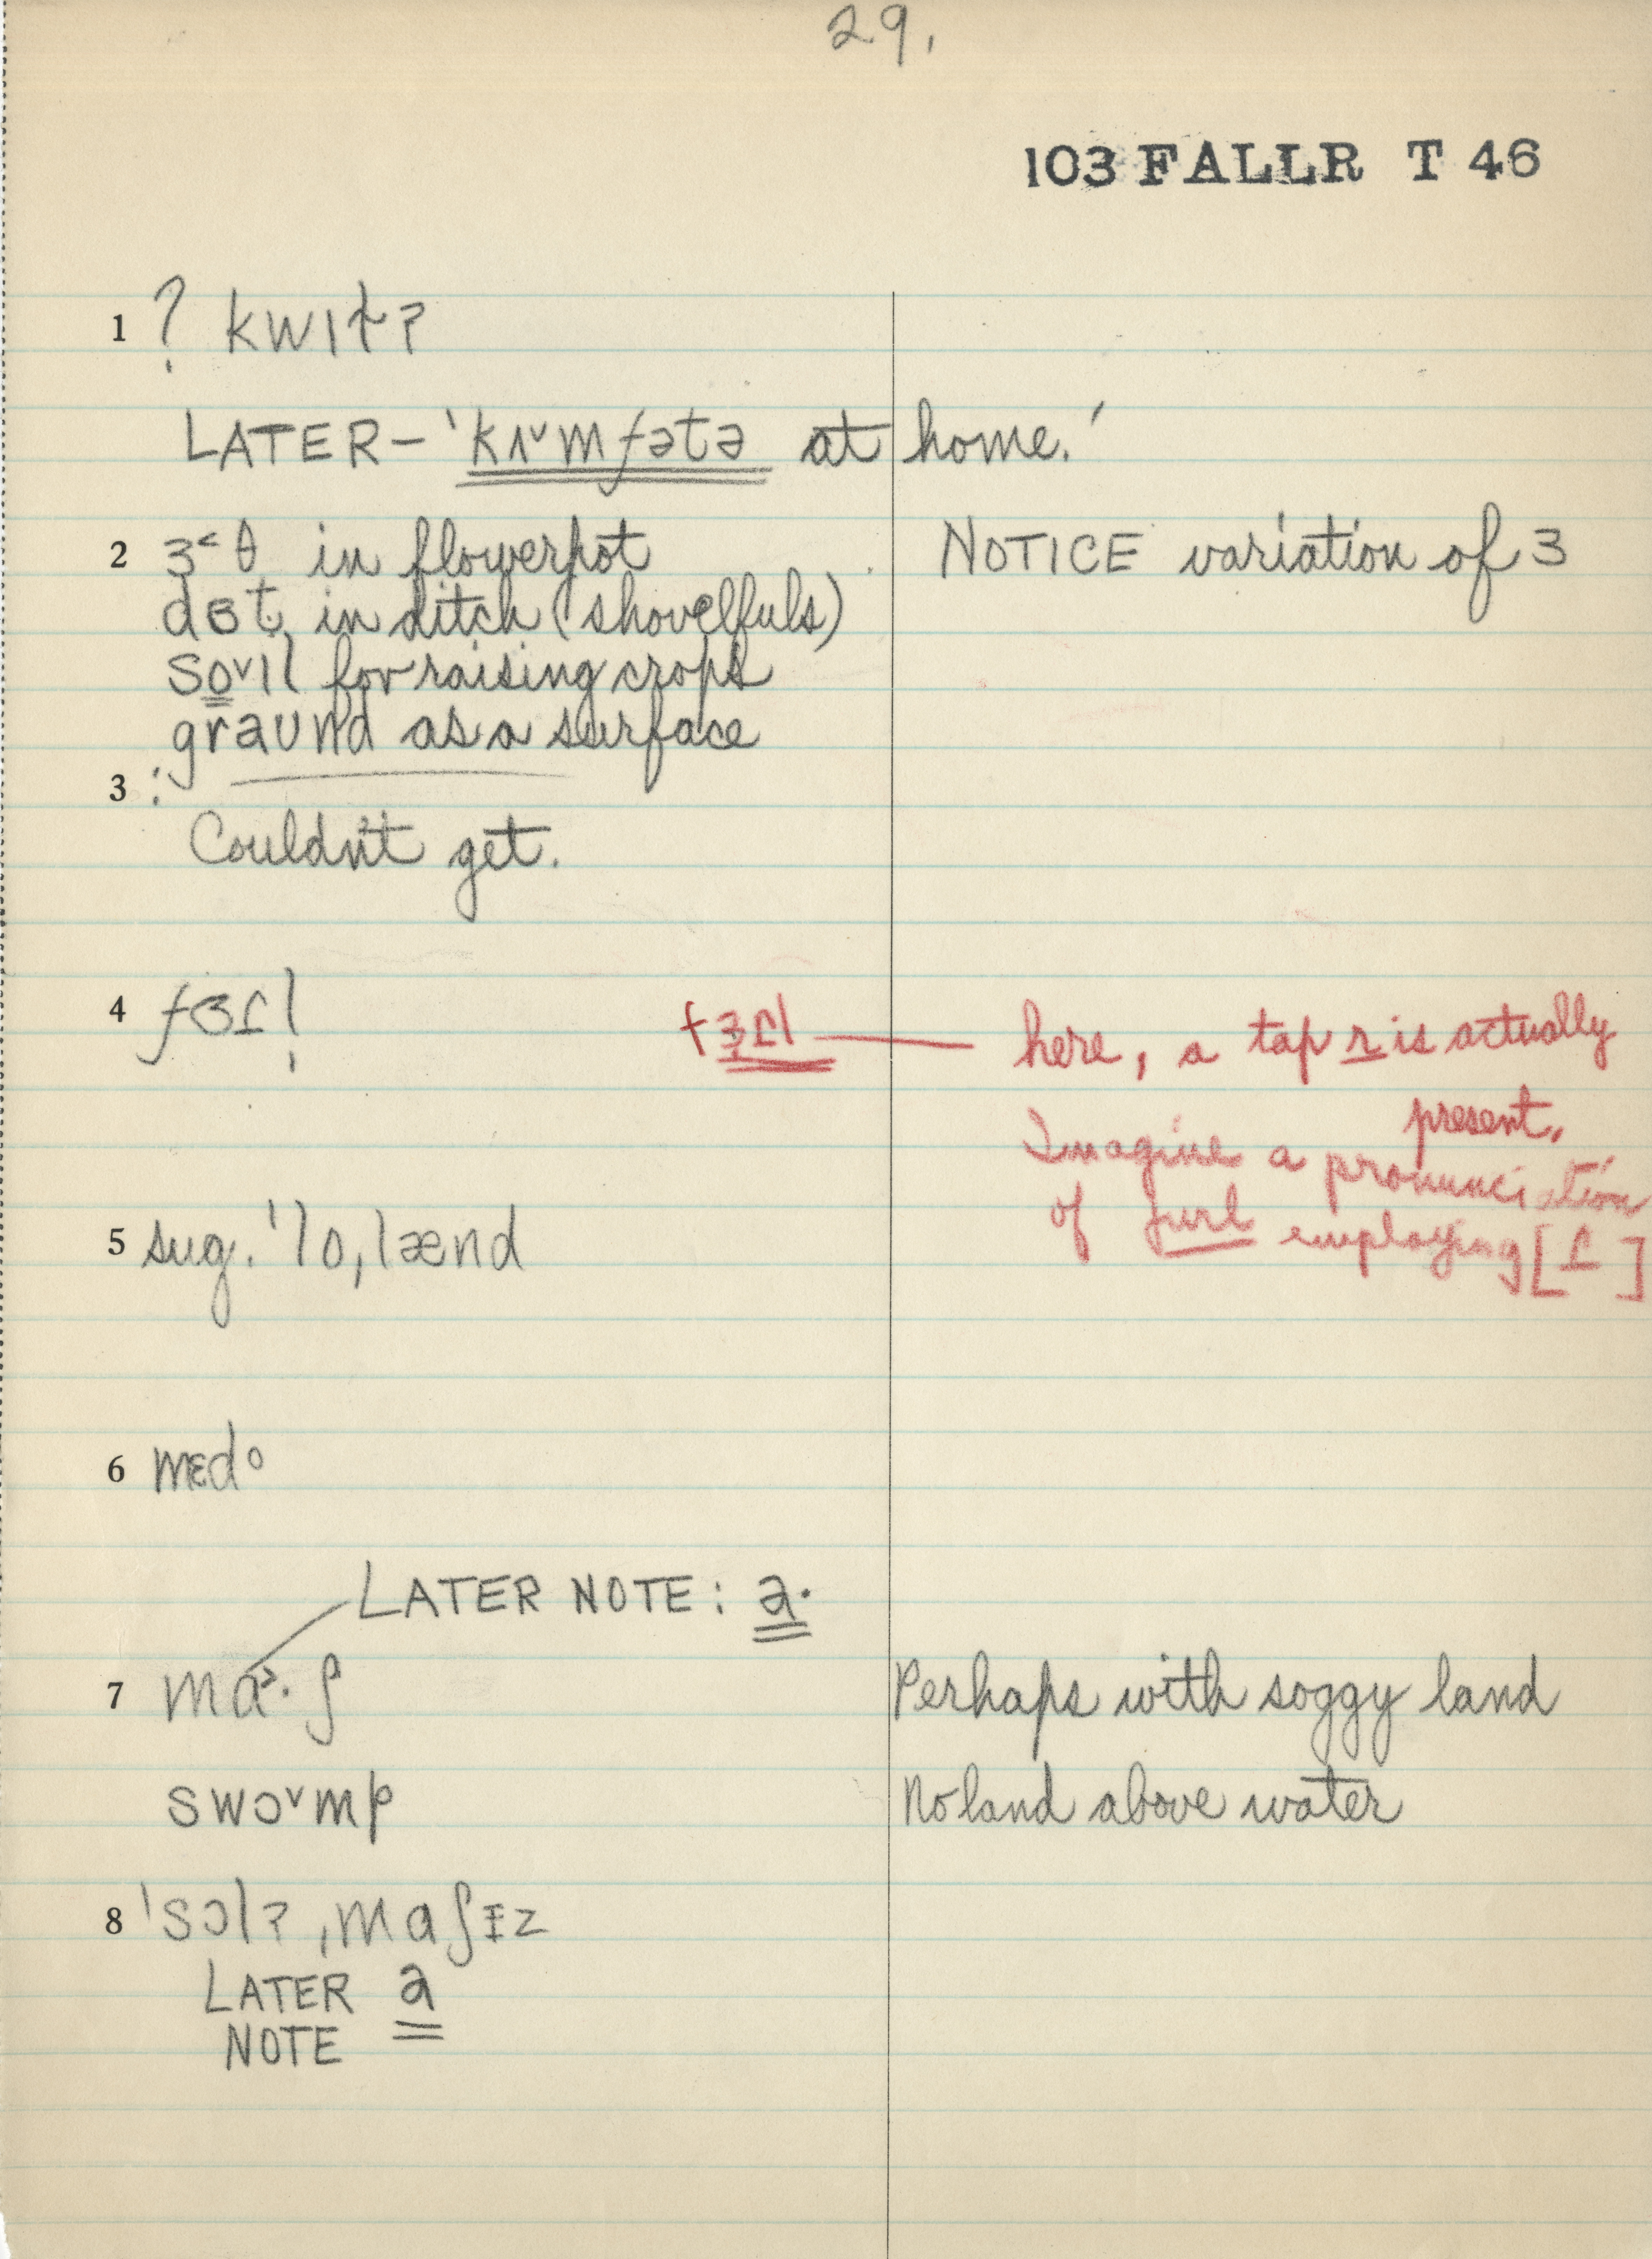 29.
103 FALLR T 46
1 ? kwɪt̴ʔ
LATER – 'kʌ˅mfətə at home.'
2 ɜ˂θ in flowerpot NOTICE variation of ɜ
dɞt̬ in ditch (shovelfuls)
so˅ɪl for raising crops
graund as a surface
3 :
Couldn't get.
4 fɞɾl̩ fɜ̣ɾl — here, a tap r is actually
present.
Imagine a pronunciation
of furl employing [ɾ]
5 sug. 'lo,lænd
6 mɛdo
LATER NOTE: a·
7 mɑ˃·ʃ Perhaps with soggy land
swɔ˅mp No land above water
8 'sɔlʔ ,mɑʃɪz
LATER a
NOTE